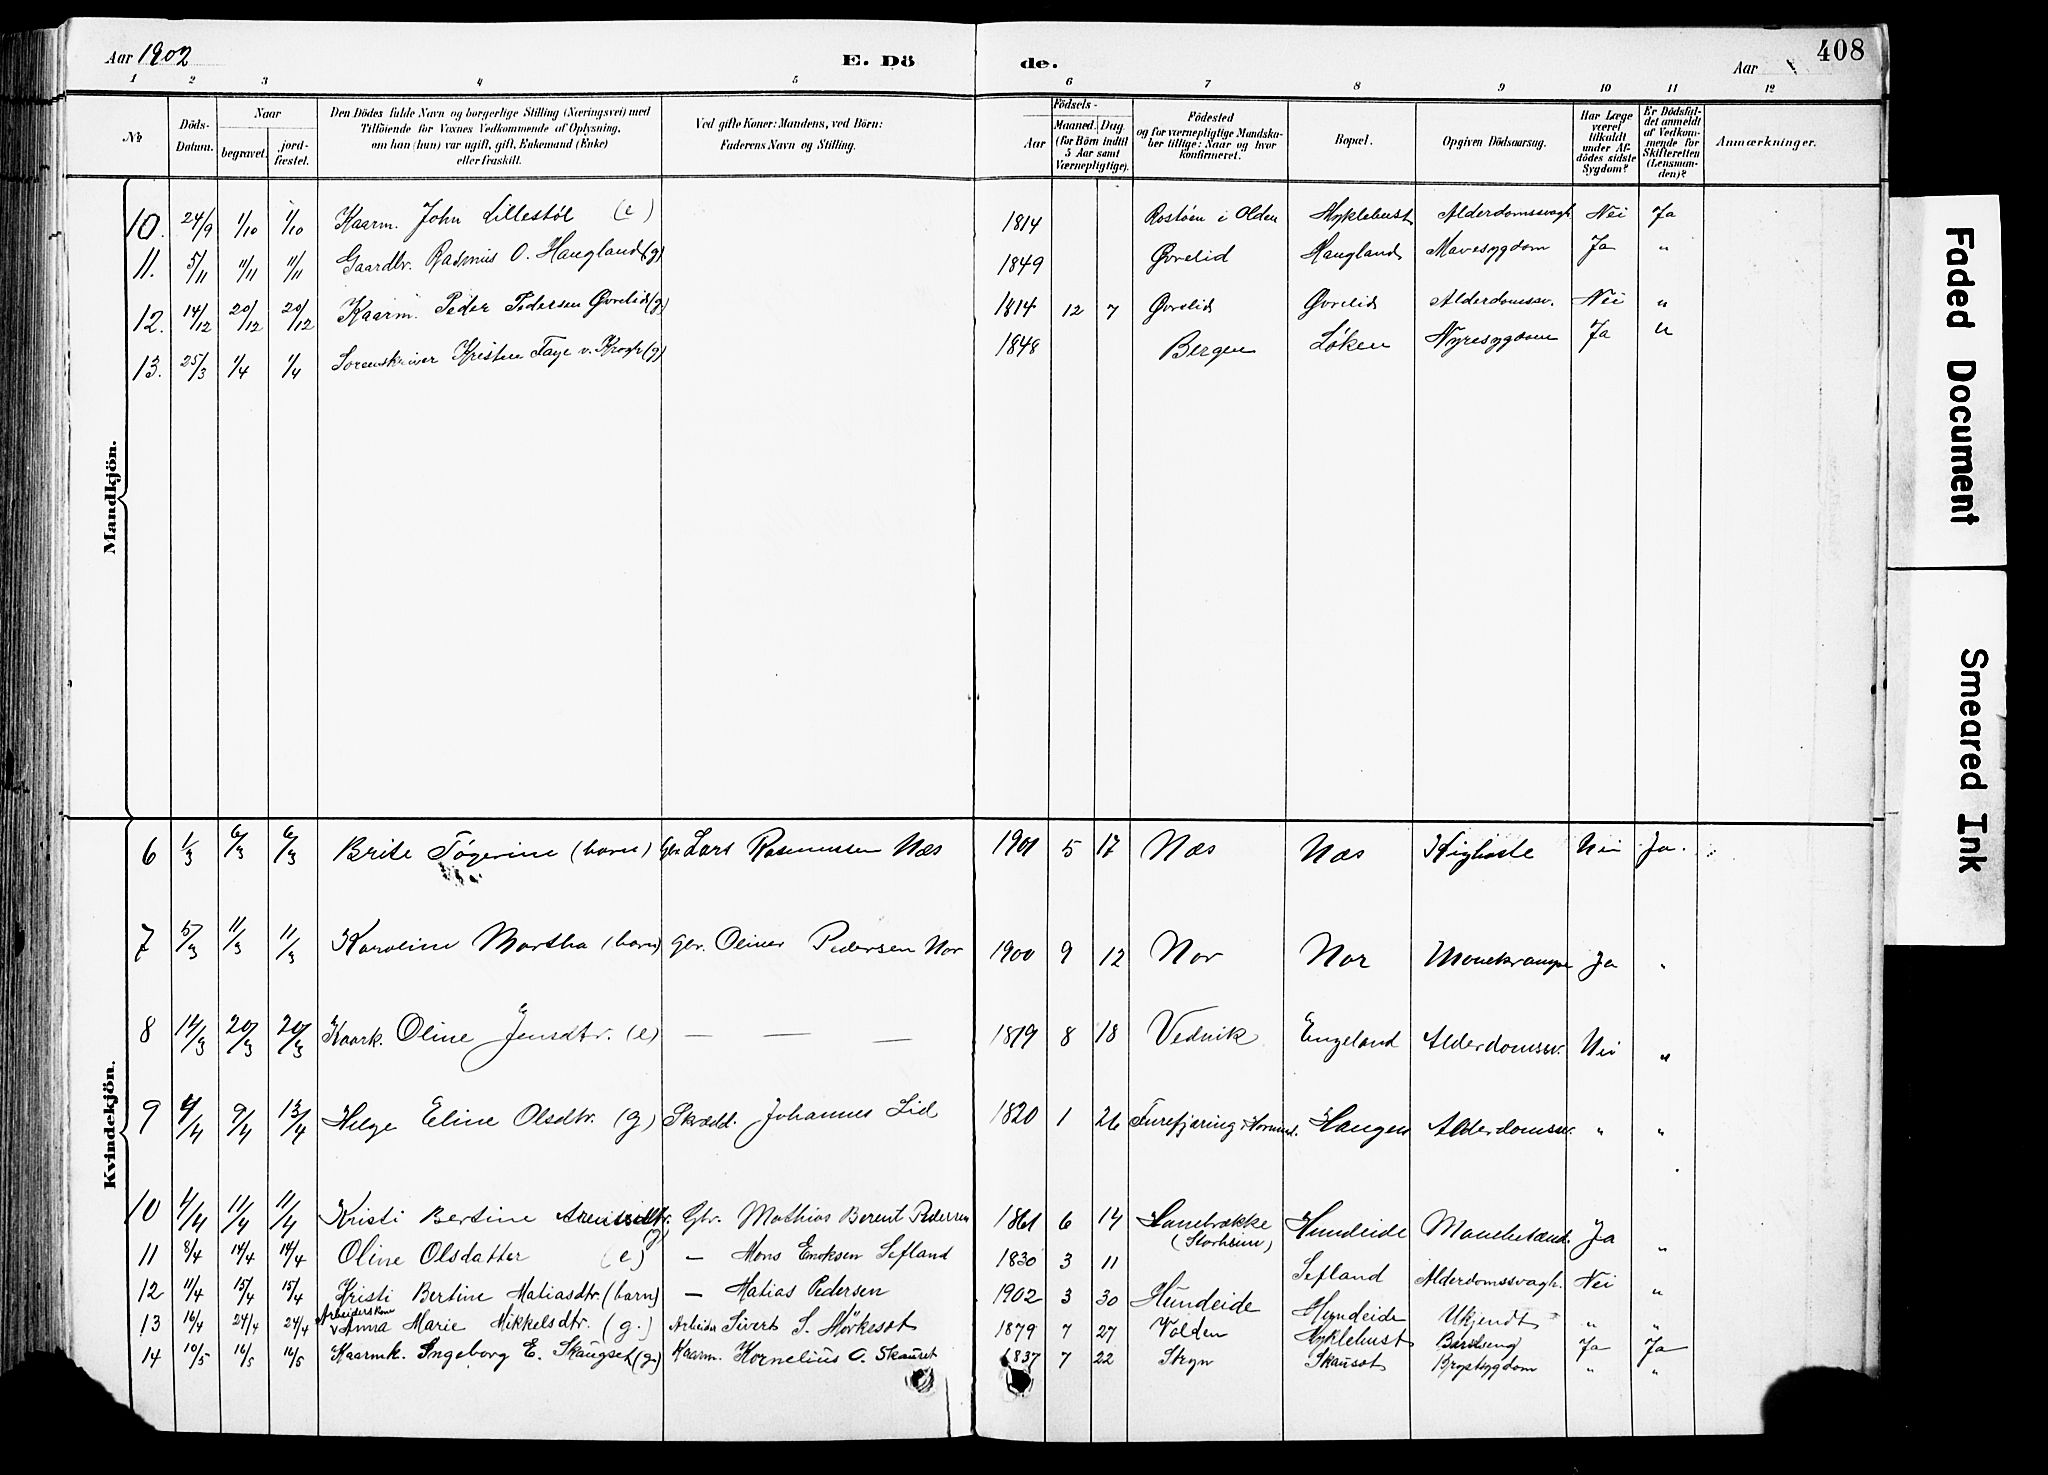 Aar 1902
E. Dö
de.
Aar
408
1 2 3 4 5 6 7 8 9 10 11 12
No
Döds-Datum.
Naar
begravet.
jord-fæstet.
Den Dödes fulde Navn og borgerlige Stilling (Næringsvei) med
Tilföiende for Voxnes Vedkommende af Oplysning,
om han (hun) var ugift, gift, Enkemand (Enke)
eller fraskilt.
Ved gifte Koner: Mandens, ved Börn:
Faderens Navn og Stilling.
Födsels-
Aar
Maaned. Dag
(for Börn indtil
5 Aar samt
Værnepligtige).
Födested
og for værnepligtige Mandska-
ber tillige: Naar og hvor
konfirmeret.
Bopæl.
Opgiven Dödsaarsag.
Har Læge
været
tilkaldt
under Af-
dödes sidste
Sygdom?
Er Dödsfal-
det anmeldt
af Vedkom-
mende for
Skifteretten
(Lensman-
den)?
Anmærkninger.
Mandkjön.
10. 24/9 1/10 1/10 Kaarm. John Lillestöl (e) 1814 Rostöen i Olden Myklebust Alderdomssvagh. Nei Ja
11. 5/11 11/11 11/11 Gaardbr. Rasmus O. Haugland (g) 1849 Øvrelid Haugland Mavesygdom Ja "
12. 14/12 20/12 20/12 Kaarm. Peder Pedersen Øvrelid (g) 1814 12 7 Øvrelid Øvrelid Alderdomssv. Nei "
13. 25/3 1/4 1/4 Sorenskriver Kristen Faye v. Krogh (g) 1848 Bergen Løken Nyresygdom Ja "
Kvindekjön.
6 1/3 6/3 6/3 Brite Tögerine (barn) Gbr. Lars Rasmussen Næs 1901 5 17 Næs Næs Kighoste Nei Ja.
7 5/3 11/3 11/3 Karoline Martha (barn) Gbr. Oliner Pedersen Nor 1900 9 12 Nor Nor Mavekrampe Ja "
8 14/3 20/3 20/3 Kaark. Oline Jensdtr. (e) — — — 1819 8 18 Vedvik Engeland Alderdomssv. Nei "
9 4/4 9/4 13/4 Helge Eline Olsdtr. (g) Skrædd. Johannes Lid 1820 1 26 Haugen Alderdomssv. " "
10 4/4 11/4 11/4 Kristi Bertine (g) Gbr. Mathias Berent Pedersen 1861 6 14 Hanebrække (Storheim) Hundeide Ja "
11 8/4 14/4 14/4 Oline Olsdatter (e) — Mons Eriksen Sefland 1830 3 11 Sefland Alderdomssvagh. Nei "
12 11/4 15/4 15/4 Kristi Bertine Matiasdtr. (barn) — Matias Pedersen 1902 3 30 Hundeide Hundeide Ukjendt " "
13 16/4 24/4 24/4 Arbeiderskone Anna Marie Mikkelsdtr. (g.) Arbeider Sivert S. Mørkesat 1879 7 27 Volden Myklebust Barselseng Ja Ja
14 10/5 16/5 16/5 Kaarmk. Ingeborg E. Skaugset (g) Kaarm. Kornelius O. Skauset 1837 7 22 Stryn Skauset Brystsygdom " "
Faded Document
Smeared Ink